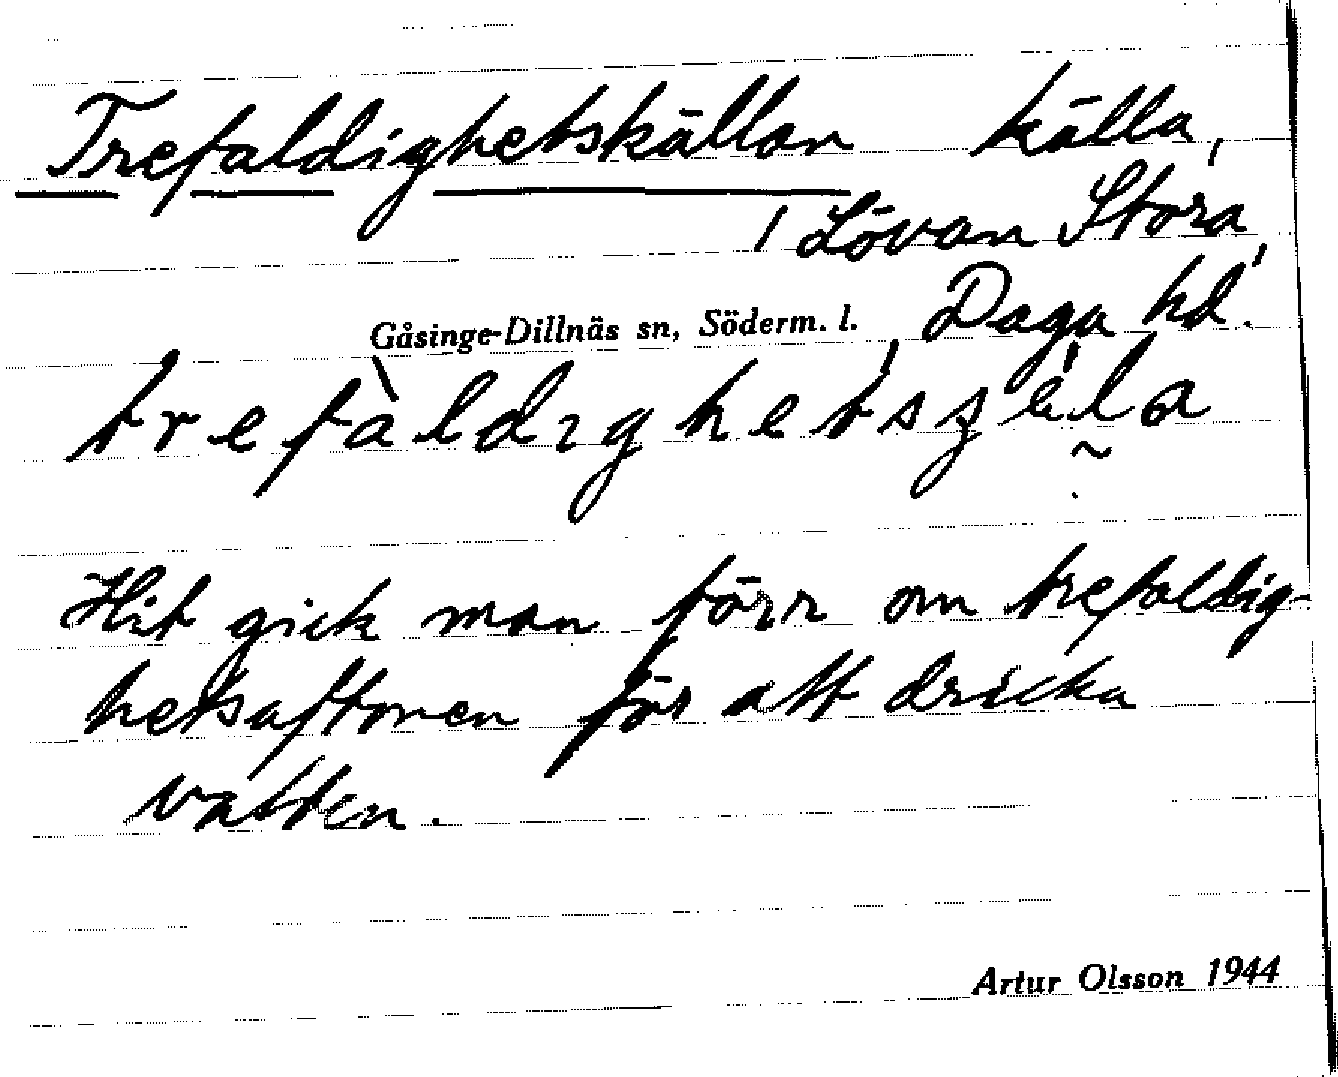 Trefaldighetskällan källa,
i Lövan Stora,
Gåsinge-Dillnäs sn, Söderm. l. Daga hd.
Hit gick man förr om trefaldig-
hetsaftonen för att dricka
vatten.
Artur Olsson 1944